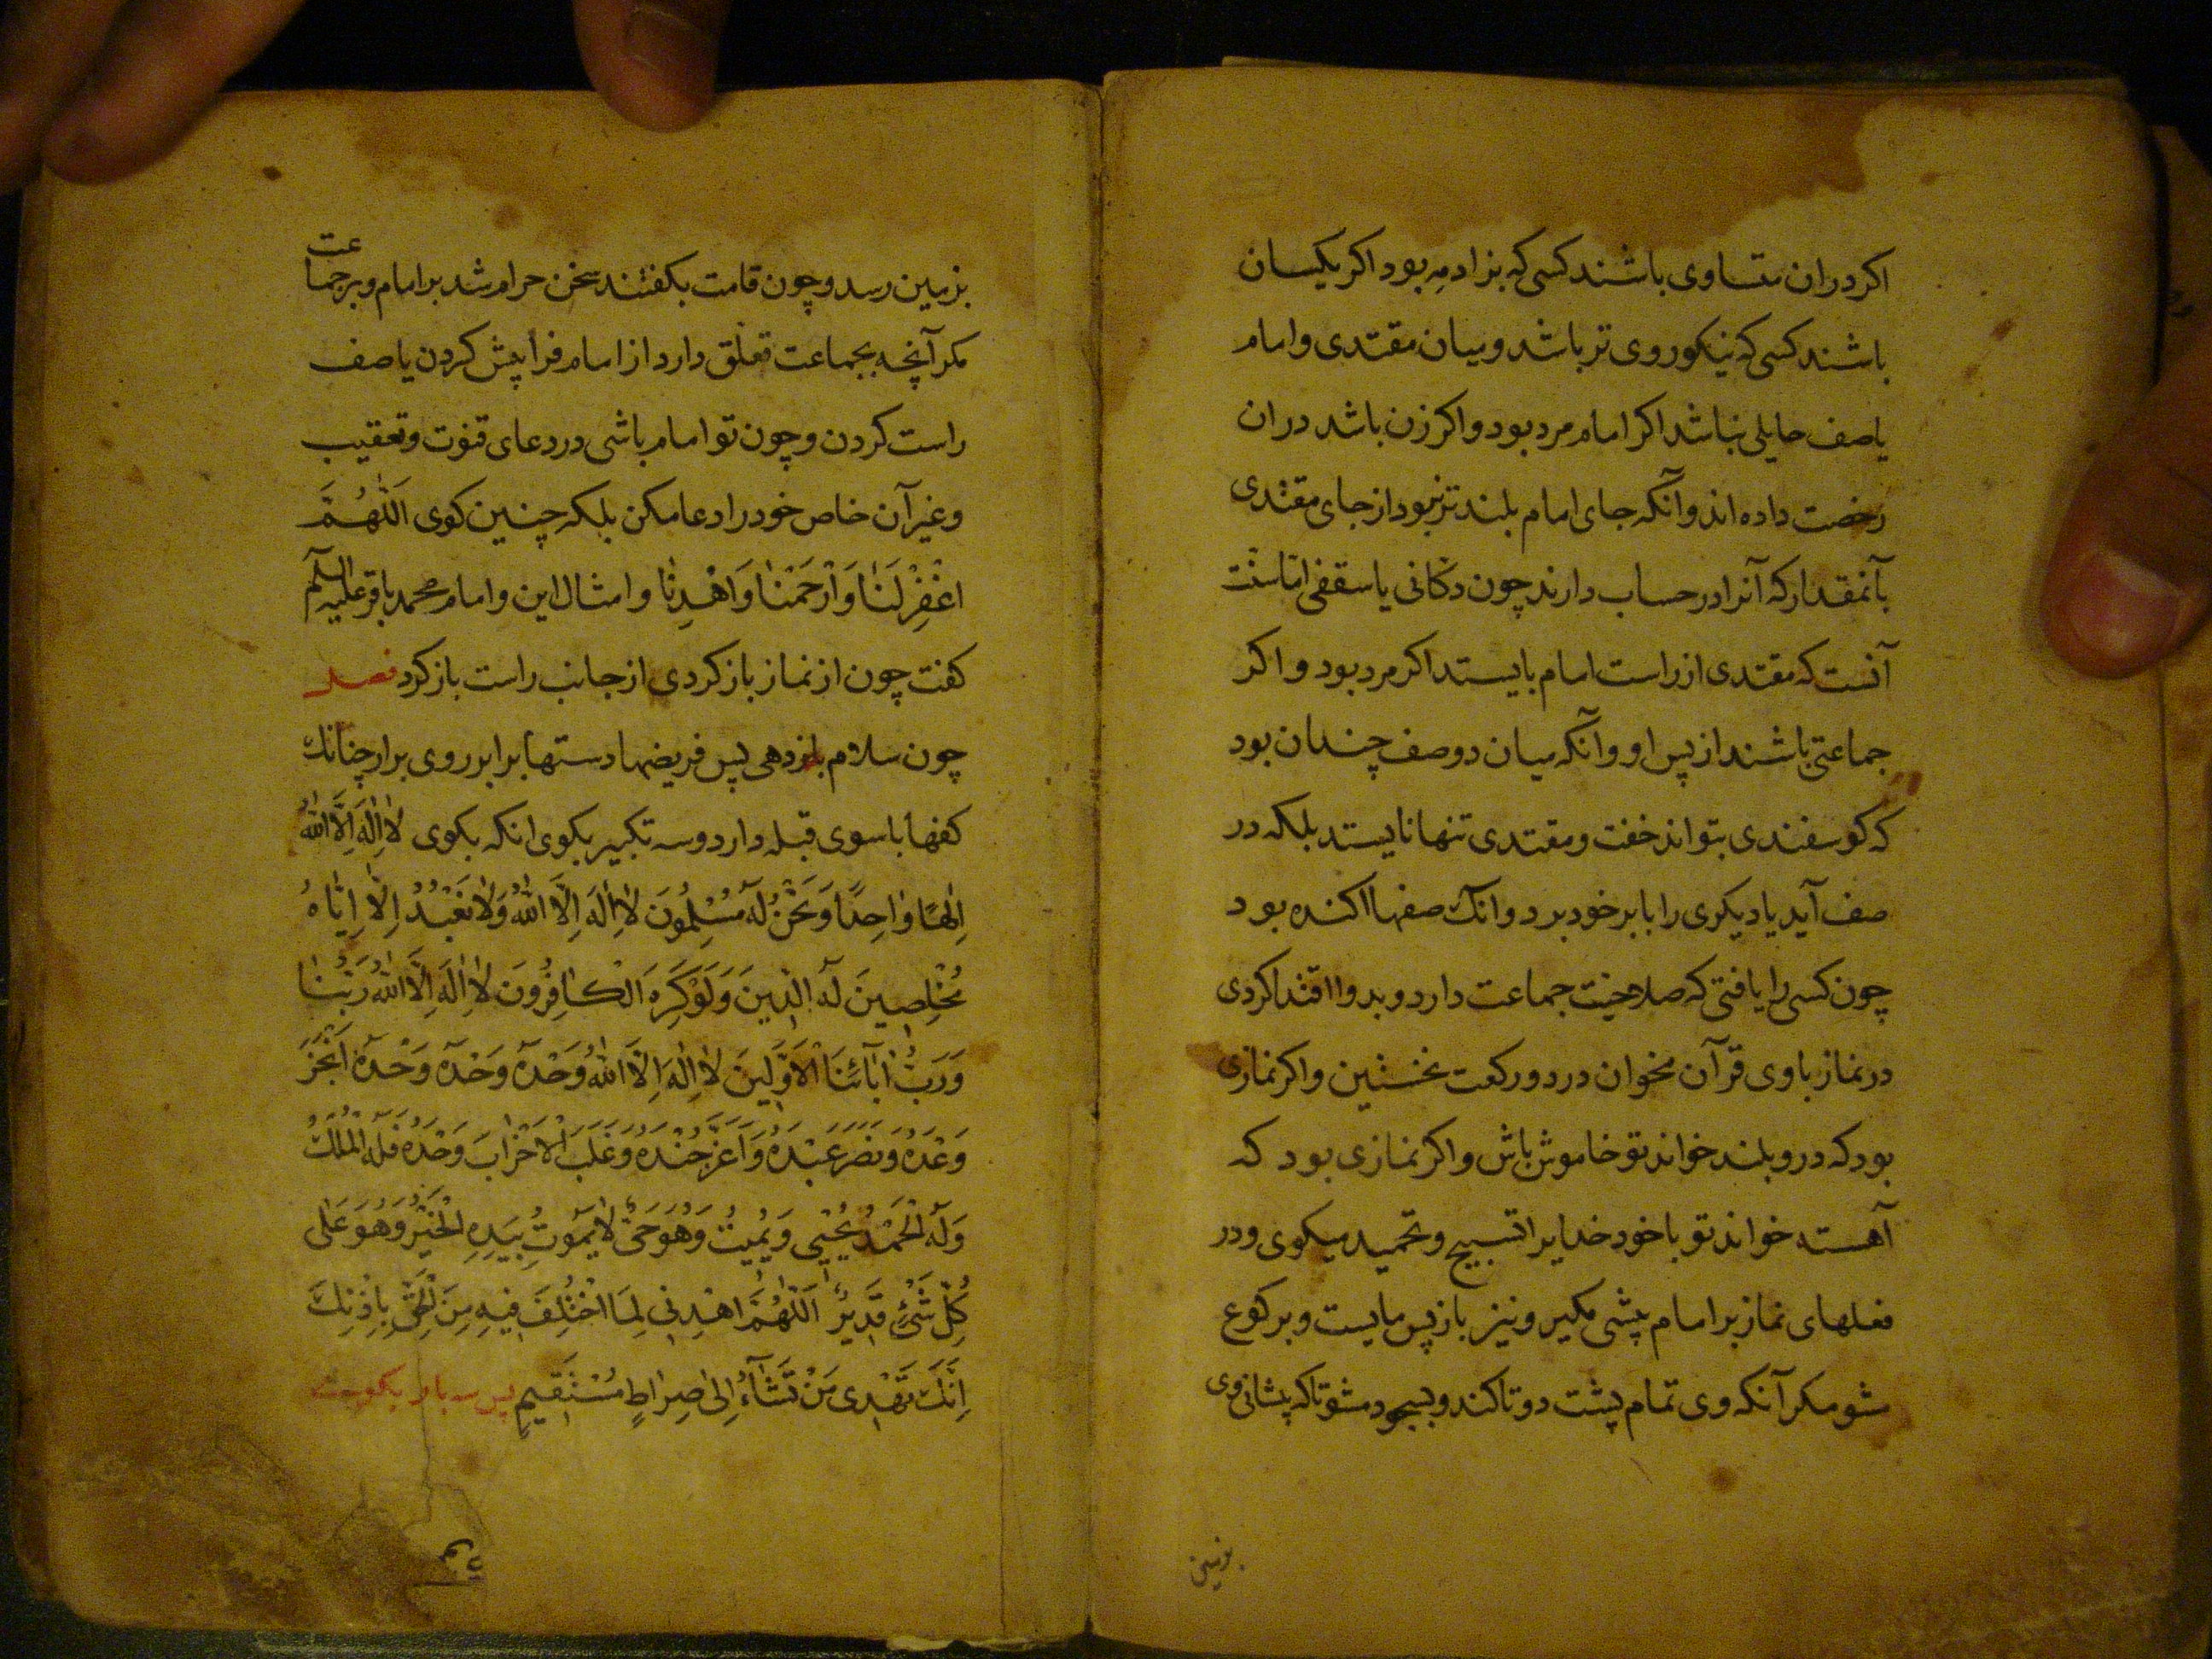 اکر دران متساوی باشند کسی که بزاد مه بود اکر یکسان
باشند کسی که نیکوروی تر باشد و میان مقتدی و امام
یا صف حایلی نباشد اکر امام مرد بود و اکر زن باشد در ان
رخصت داده اند و آنکه جای امام بلند تر نبود از جای مقتدی
بآنمقدار که آنرا در حساب دارند چون دکانی یا سقفی اما سنت
آنست که مقتدی از راست امام بایستد اکر مرد بود و اکر
جماعتی باشند از پس او و آنکه میان دو صف چندان بود
که کوسفندی بتواند خفت و مقتدی تنها نایستد بلکه در
صف آید یا دیکری را با بر خود برد و انک صفها اکنده بود
چون کسی را یافتی که صلاحیت جماعت دارد و بدو اقتدا کردی
در نماز با وی قرآن مخوان در دو رکعت نخستین و اکر نمازی
بود که درو بلند خواند تو خاموش باش و اکر نمازی بود که
آهسته خواند تو با خود خدایرا تسبیح و تحمید میکوی و در
فعلهای نماز بر امام پیشی مکیر و نیز باز پس مایست و برکوع
مشو مکر آنکه وی تمام پشت دوتا کند و بسجود مشو تا که پیشانی وی
بزمین
بزمین رسد و چون قامت بکفتند سخن حرام شد بر امام و بر جماعت
مکر آنچه بجماعت تعلق دارد از امام فرا پیش کردن یا صف
راست کردن و چون تو امام باشی در دعای قنوت و تعقیب
و غیر آن خاص خود را دعا مکن بلکه چنین کوی اَللّٰهُمَّ
اغْفِرْ لَنٰا وَارْحَمْنٰا وَاهْدِنٰا و امثال این و امام محمد باقر علیه السلم
کفت چون از نماز باز کردی از جانب راست باز کرد فصل
چون سلام بازدهی پس فریضها دستها برابر روی برار چنانک
کفها با سوی قبله دارد و سه تکبیر بکوی انکه بکوی لٰا اِلٰهَ اِلَّا اللّٰهُ
اِلٰهًا وٰاحِدًا وَنَحْنُ لَهُ مُسْلِمُونَ لٰا اِلٰهَ اِلَّا اللّٰهُ وَلٰا نَعْبُدُ اِلّٰا اِیّٰاهُ
مُخْلِصِینَ لَهُ الدِّینَ وَلَوْ کَرِهَ الْکٰافِرُونَ لٰا اِلٰهَ اِلَّا اللّٰهُ رَبُّنٰا
وَرَبُّ اٰبٰآئِنَا الْاَوَّلِینَ لٰا اِلٰهَ اِلَّا اللّٰهُ وَحْدَهُ وَحْدَهُ وَحْدَهُ اَنْجَزَ
وَعْدَهُ وَنَصَرَ عَبْدَهُ وَاَعَزَّ جُنْدَهُ وَغَلَبَ الْاَحْزٰابَ وَحْدَهُ فَلَهُ الْمُلْکُ
وَلَهُ الْحَمْدُ یُحْیِی وَیُمِیتُ وَهُوَ حَیٌّ لٰا یَمُوتُ بِیَدِهِ الْخَیْرُ وَهُوَ عَلٰی
کُلِّ شَیْءٍ قَدِیرٌ اَللّٰهُمَّ اهْدِنِی لِمَا اخْتُلِفَ فِیهِ مِنَ الْحَقِّ بِاِذْنِکَ
اِنَّکَ تَهْدِی مَنْ تَشٰآءُ اِلٰی صِرٰاطٍ مُسْتَقِیمٍ پس سه بار بکوید